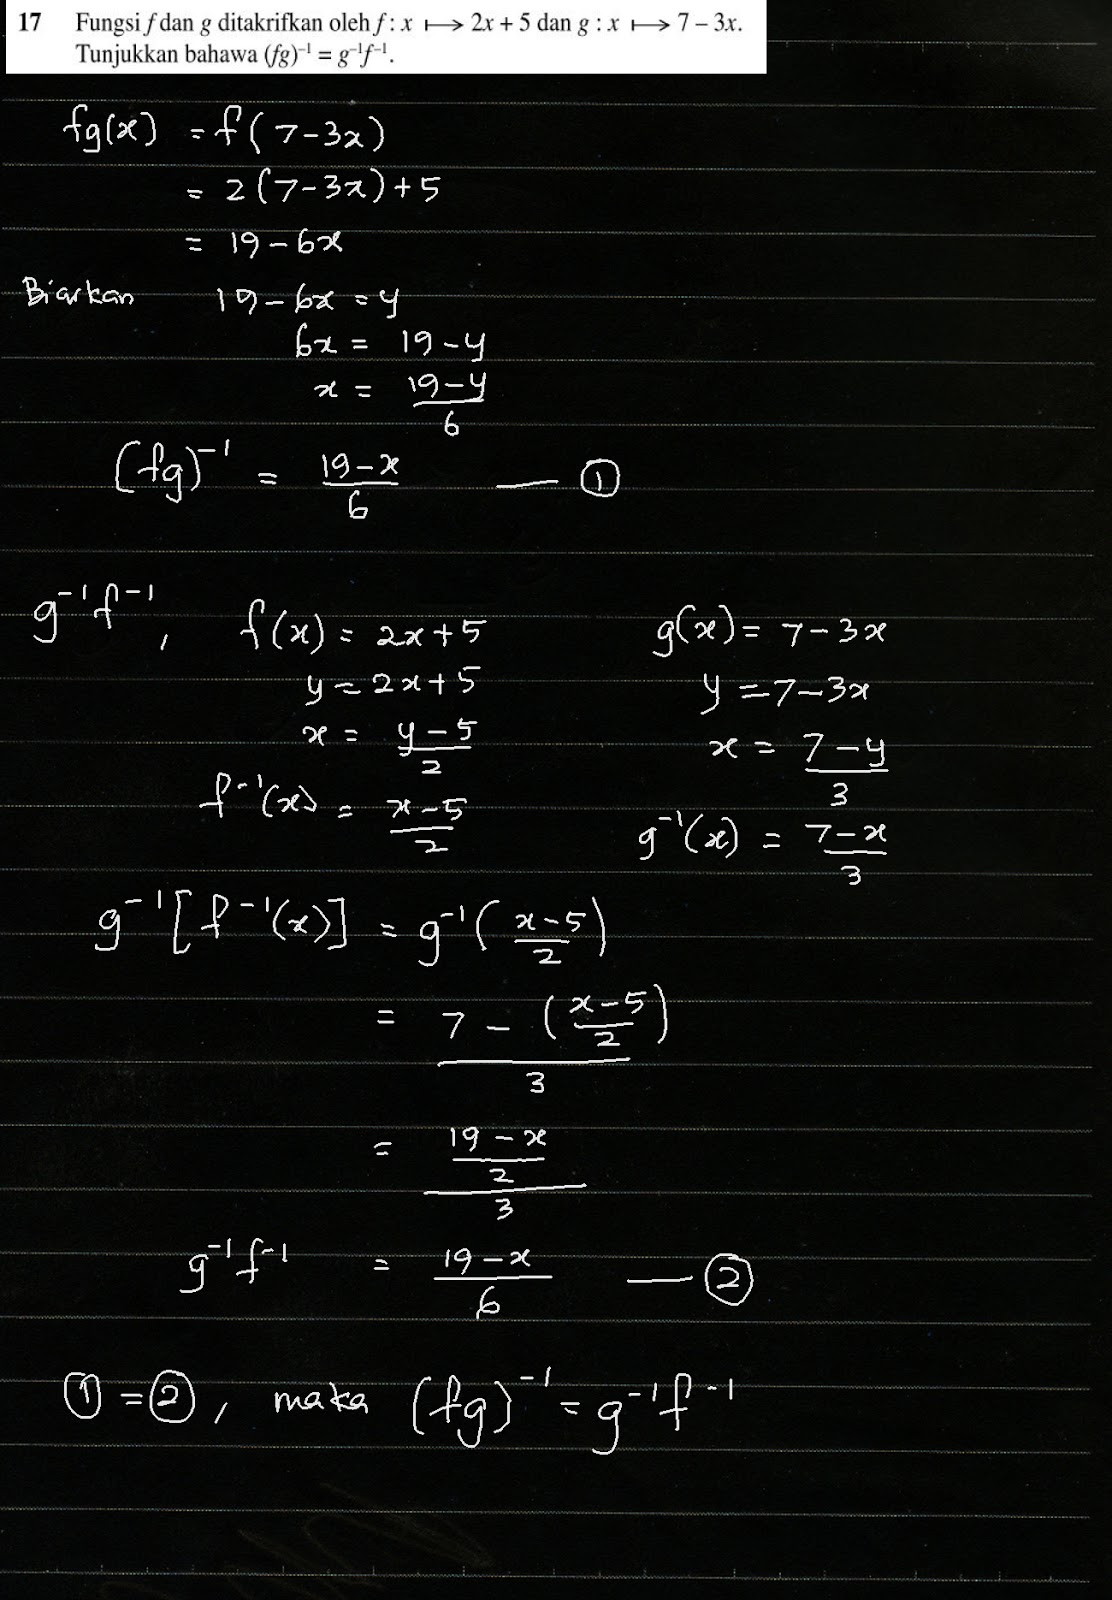 17 Fungsi f dan g ditakrifkan oleh f : x ⟼ 2x + 5 dan g : x ⟼ 7 – 3x.
Tunjukkan bahawa (fg)⁻¹ = g⁻¹f⁻¹.
fg(x) = f(7-3x)
= 2(7-3x)+5
= 19-6x
Biarkan 19-6x = y
6x = 19-y
x = (19-y)/6
(fg)⁻¹ = (19-x)/6 — ①
g⁻¹f⁻¹, f(x) = 2x+5 g(x) = 7-3x
y = 2x+5 y = 7-3x
x = (y-5)/2 x = (7-y)/3
f⁻¹(x) = (x-5)/2 g⁻¹(x) = (7-x)/3
g⁻¹[f⁻¹(x)] = g⁻¹((x-5)/2)
= (7 - ((x-5)/2))/3
= ((19-x)/2)/3
g⁻¹f⁻¹ = (19-x)/6 — ②
① = ②, maka (fg)⁻¹ = g⁻¹f⁻¹